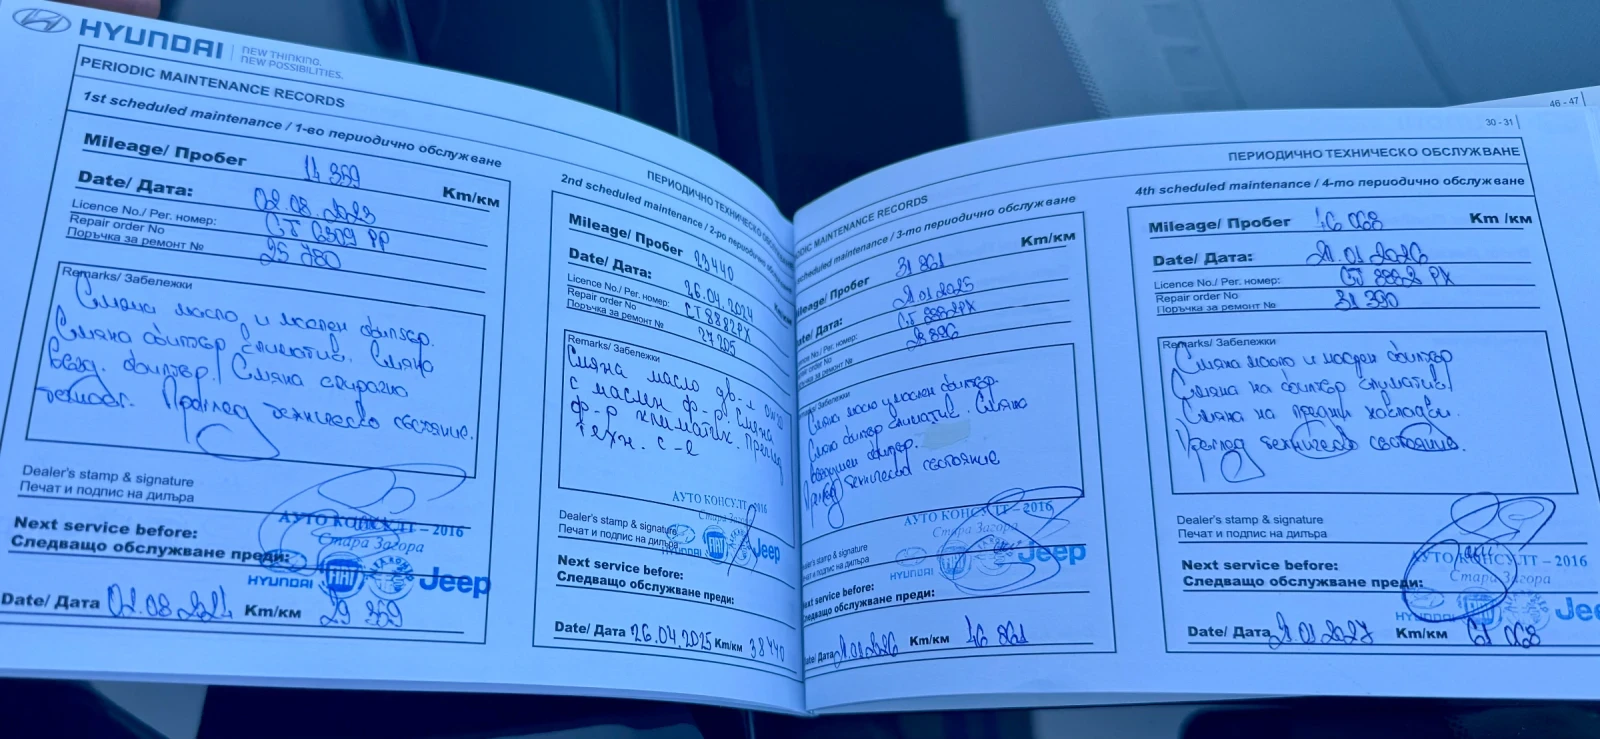 HYUNDAI
NEW THINKING.
NEW POSSIBILITIES.
PERIODIC MAINTENANCE RECORDS
1st scheduled maintenance / 1-во периодично обслужване
Mileage/ Пробег 14 359 Km/км
Date/ Дата: 02.08.2023
Licence No./ Рег. номер: СТ 0309 РР
Repair order No
Поръчка за ремонт № 25 780
Remarks/ Забележки
Смяна масло и маслен филтър.
Смяна филтър климатик. Смяна
възд. филтър. Смяна спирачна
течност. Преглед техническо състояние.
Dealer's stamp & signature
Печат и подпис на дилъра
АУТО КОНСУЛТ – 2016
Стара Загора
HYUNDAI FIAT Jeep
Next service before:
Следващо обслужване преди:
Date/ Дата 02.08.2024 Km/км 29 359
ПЕРИОДИЧНО ТЕХНИЧЕСКО
2nd scheduled maintenance / 2-ро периодично
Mileage/ Пробег 23440
Date/ Дата: 26.04.2024
Licence No./ Рег. номер: СТ8882РХ
Repair order No
Поръчка за ремонт № 27205
Remarks/ Забележки
Смяна масло дв-л 0w20
с маслен ф-р. Смяна
ф-р климатик. Преглед
техн. с-е
АУТО КОНСУЛТ 2016
Стара
Dealer's stamp & signature
Печат и подпис на дилъра
HYUNDAI FIAT Jeep
Next service before:
Следващо обслужване преди:
Date/ Дата 26.04.2025 Km/км 38440
MAINTENANCE RECORDS
scheduled maintenance / 3-то периодично обслужване
Mileage/ Пробег 31 861 Km/км
Date/ Дата: 21.01.2025
Licence No./ Рег. номер: СТ 8882РХ
Repair order No
Поръчка за ремонт № 28 896
Забележки
Смяна масло и маслен филтър.
филтър климатик. Смяна
въздушен филтър.
Преглед техническо състояние
АУТО КОНСУЛТ – 2016
Стара Загора
stamp & signature
Печат и подпис на дилъра
HYUNDAI Jeep
service before:
Следващо обслужване преди:
Date/ Дата 21.01.2026 Km/км 46 861
46 - 47
30 - 31
ПЕРИОДИЧНО ТЕХНИЧЕСКО ОБСЛУЖВАНЕ
4th scheduled maintenance / 4-то периодично обслужване
Mileage/ Пробег 46 068 Km /км
Date/ Дата: 21.01.2026
Licence No./ Рег. номер: СТ 8882 РХ
Repair order No
Поръчка за ремонт № 31 390
Remarks/ Забележки
Смяна масло и маслен филтър
Смяна на филтър климатик.
Смяна на предни накладки.
Преглед техническо състояние.
Dealer's stamp & signature
Печат и подпис на дилъра
АУТО КОНСУЛТ – 2016
Стара Загора
HYUNDAI FIAT Jee
Next service before:
Следващо обслужване преди:
Date/ Дата 21.01.2027 Km/км 61 068